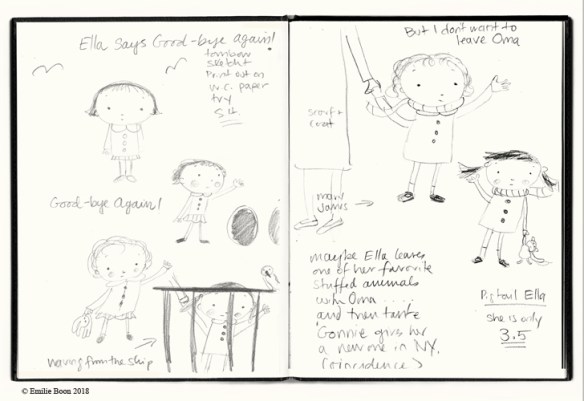 Ella Says Good-bye Again!
tombow
sketch
Print out on
w.c. paper
try
Good-bye Again!
waving from the ship
But I don't want to
leave Oma
scarf +
coat
mary
Janes
maybe Ella leaves
one of her favorite
stuffed animals
with Oma ....
and then tante
Connie gives her
a new one in NY.
(coincidence)
Pigtail Ella
she is only
3.5
© Emilie Boon 2018